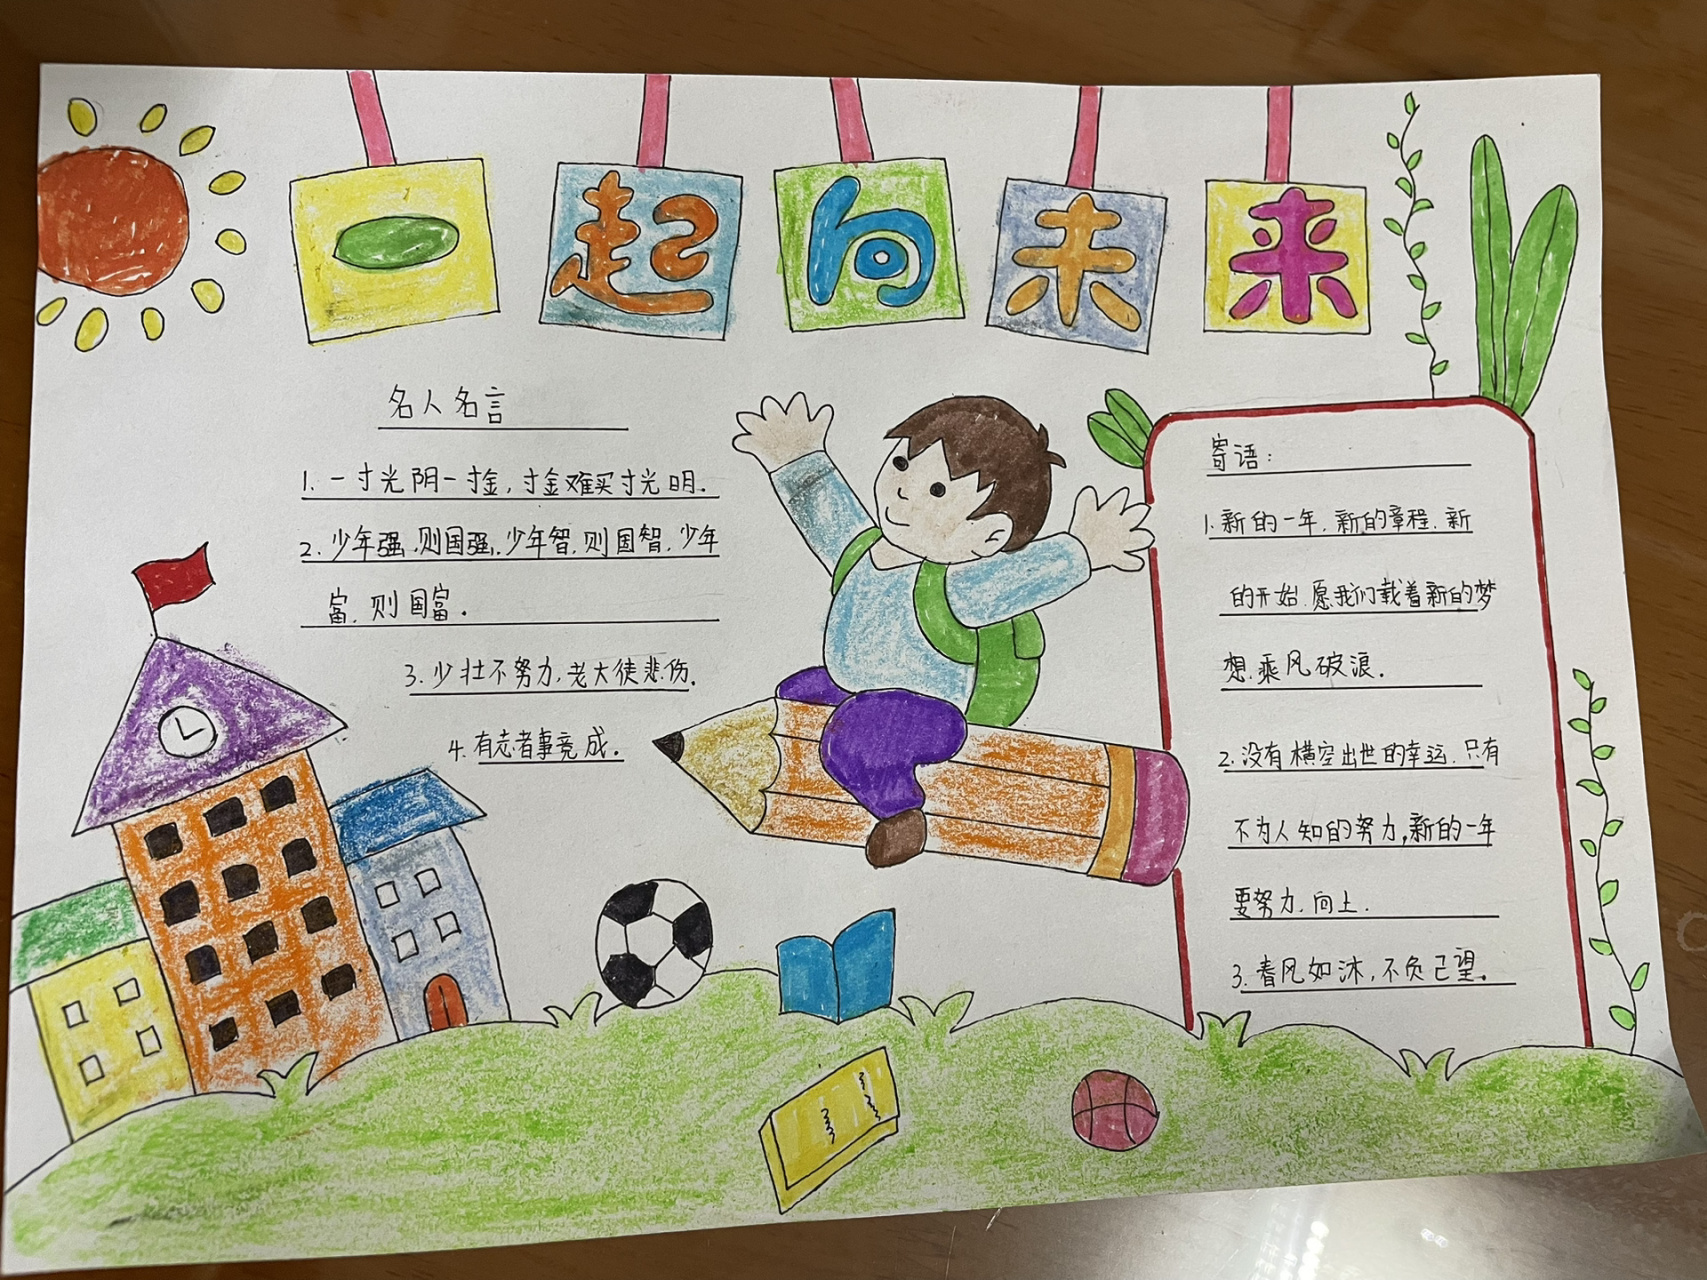 一起向未来
名人名言
1. 一寸光阴一寸金,寸金难买寸光明.
2. 少年强,则国强,少年智,则国智,少年
富,则国富.
3. 少壮不努力,老大徒悲伤.
4. 有志者事竟成.
寄语:
1. 新的一年,新的章程,新
的开始,愿我们载着新的梦
想,乘风破浪.
2. 没有横空出世的幸运,只有
不为人知的努力,新的一年
要努力,向上.
3. 春风如沐,不负己望.